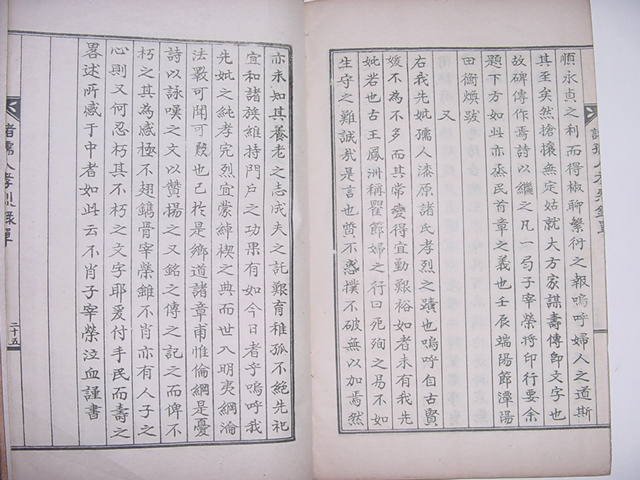 順永貞之利而得椒聊繁衍之報嗚呼婦人之道斯
其至矣然搶攘無定姑就大方家謀壽傳即文字也
故碑傳作焉詩以繼之凡一旣子宰榮將印行要余
題下方如此亦烝民首章之義也壬辰端陽節潭陽
田衡煥跋
又
右我先妣孺人漆原諸氏孝烈之蹟也嗚呼自古賢
媛不爲不多而其常變得宜勤艱裕如者未有我先
妣若也古王鳳洲稱瞿節婦之行曰死殉之易不如
生守之難誠哉是言也贄不惑撲不破無以加焉然
亦未知其養老之志成夫之託艱育稚孤不絶先祀
宜和諸族維持門戶之功果有如今日者乎嗚呼我
先妣之純孝完烈宜蒙綽楔之典而世入明夷綱淪
法斁可聞可設也已於是鄉道諸章甫惟倫綱是憂
詩以詠嘆之文以贊揚之又銘之傳之記之而俾不
朽之其爲感極不翅鐫骨宰榮雖不肖亦有人子之
心則又何忍朽其不朽之文字耶爰付手民而壽之
畧述所感于中者如此云不肖子宰榮泣血謹書
諸孺人孝烈錄單
二十五